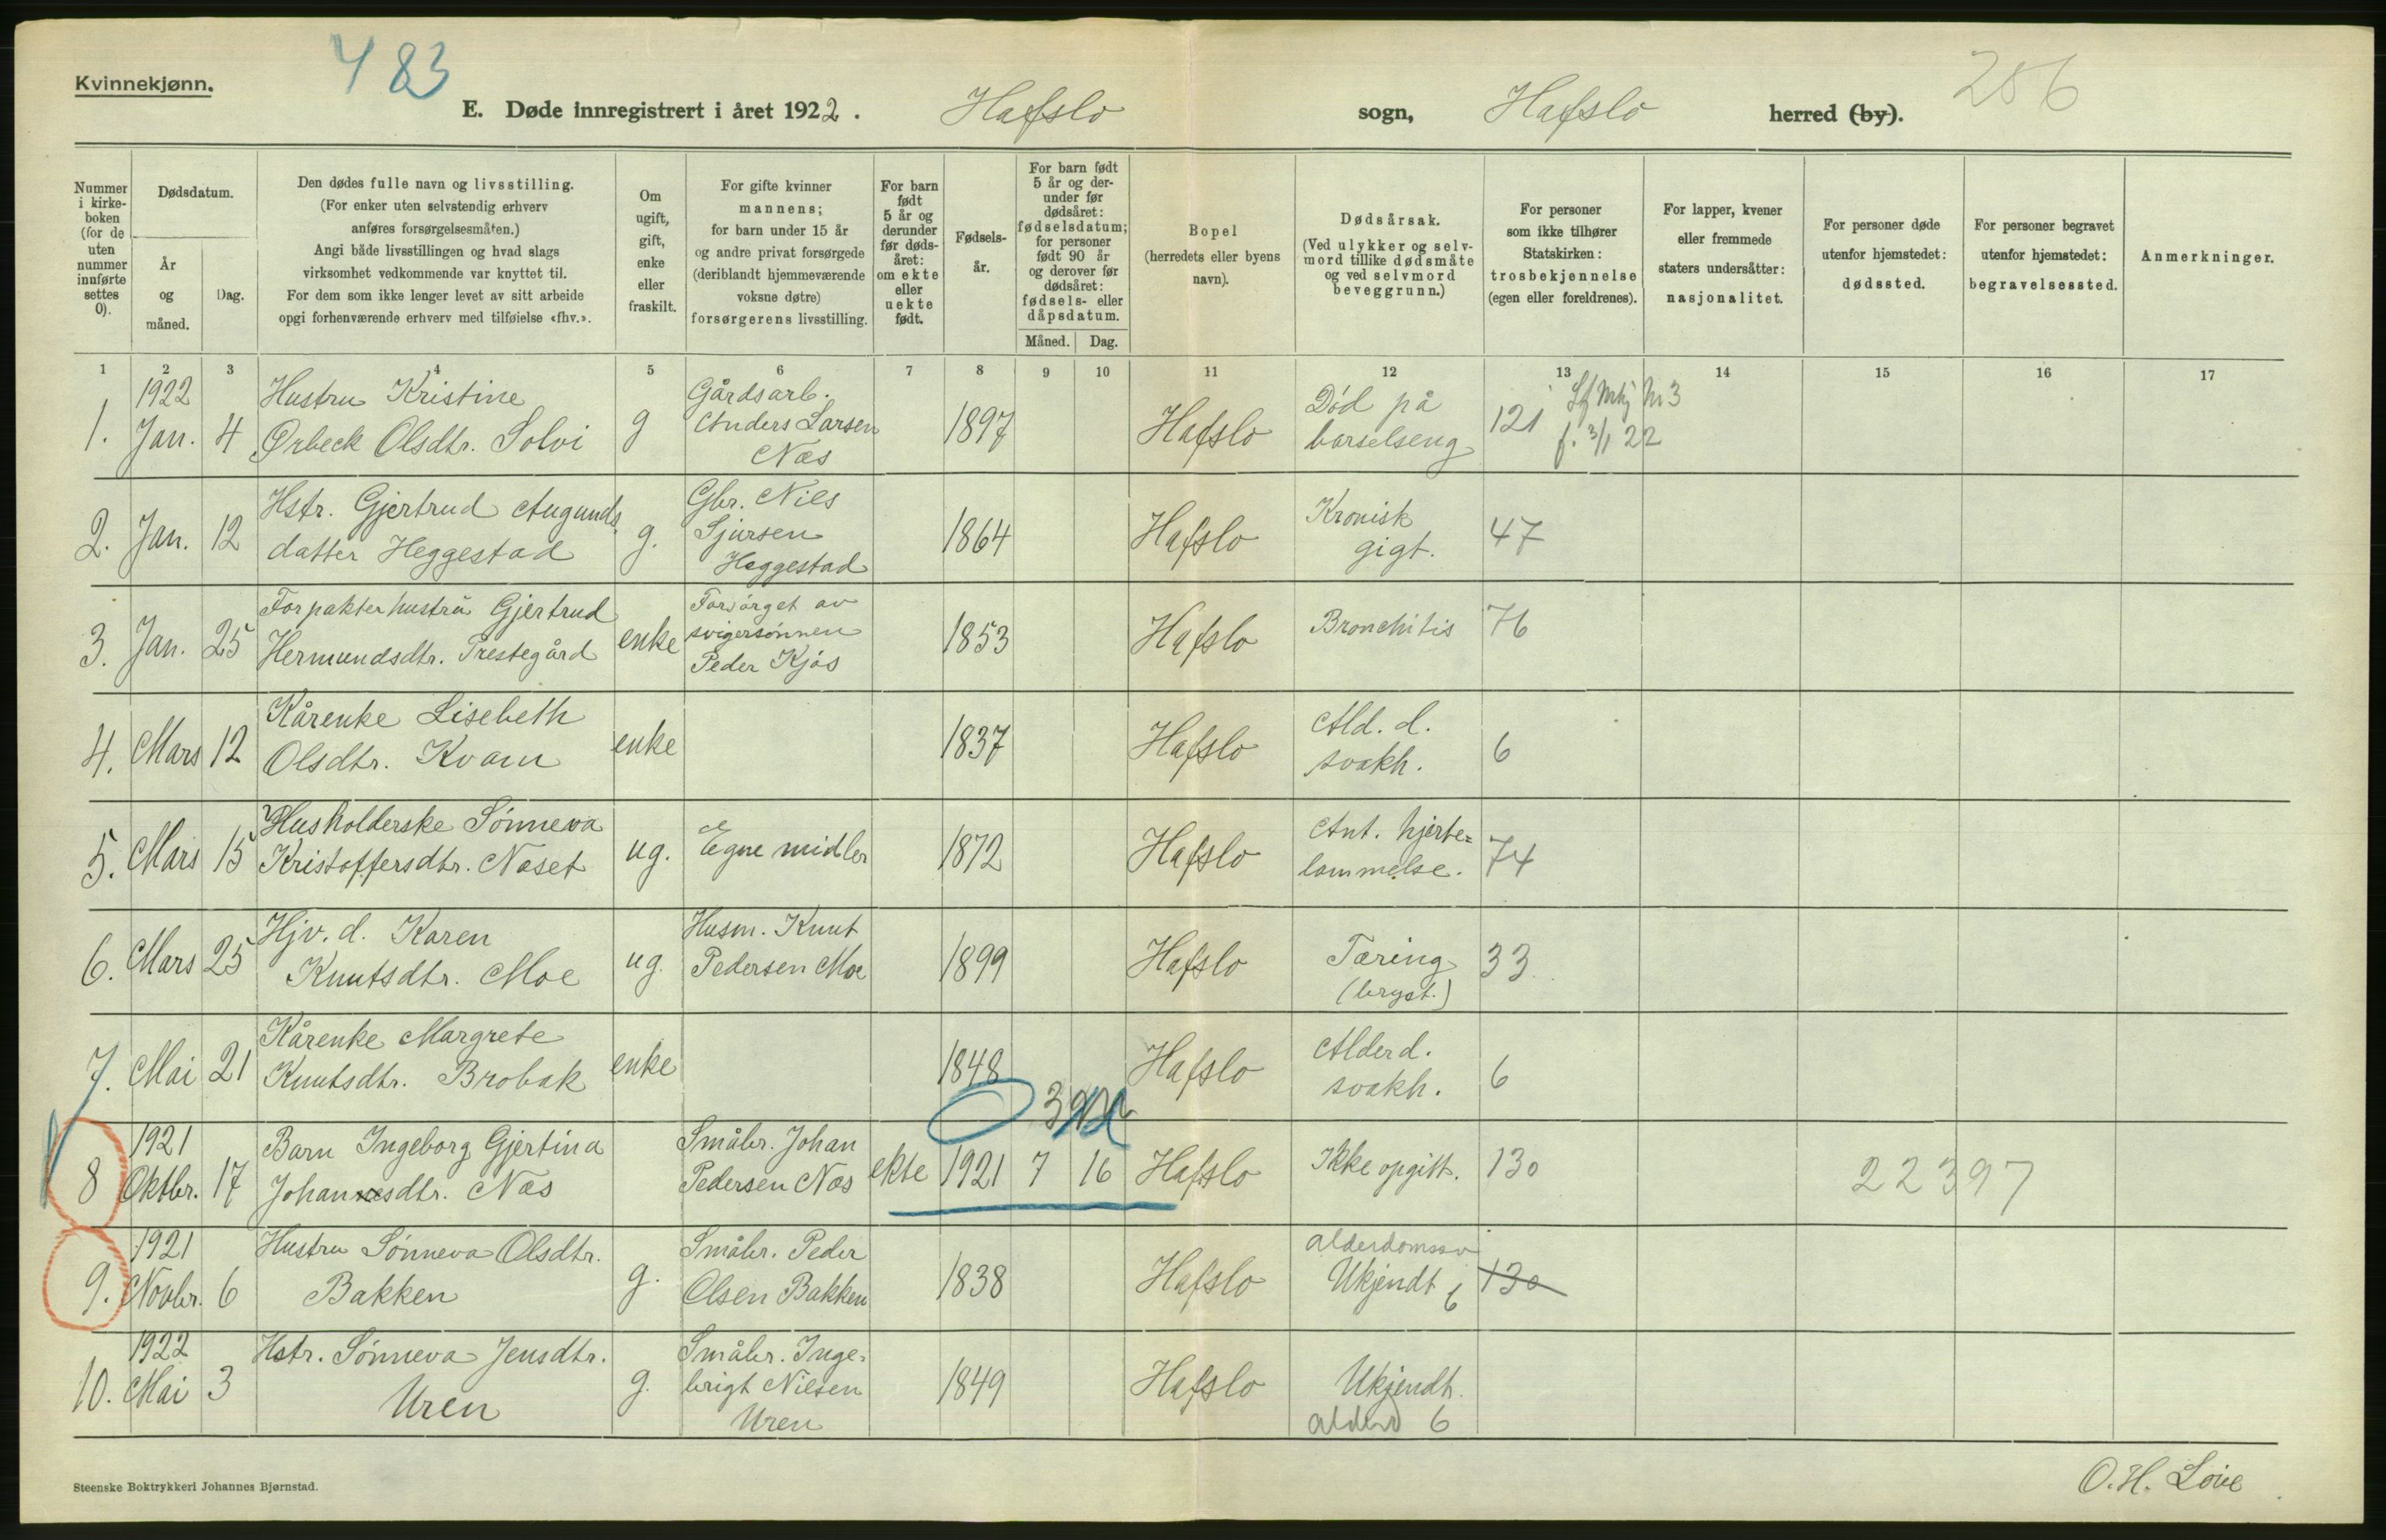 Kvinnekjønn.
483
E. Døde innregistrert i året 1922. Hafslo sogn, Hafslo herred (by).
256
Nummer i kirkeboken (for de uten nummer innførte settes 0).
Dødsdatum.
År og måned.
Dag.
Den dødes fulle navn og livsstilling.
(For enker uten selvstendig erhverv
anføres forsørgelsesmåten.)
Angi både livsstillingen og hvad slags
virksomhet vedkommende var knyttet til.
For dem som ikke lenger levet av sitt arbeide
opgi forhenværende erhverv med tilføielse «fhv.».
Om ugift, gift, enke eller fraskilt.
For gifte kvinner
mannens;
for barn under 15 år
og andre privat forsørgede
(deriblandt hjemmeværende
voksne døtre)
forsørgerens livsstilling.
For barn født 5 år og derunder før dødsåret: om ekte eller uekte født.
Fødselsår.
For barn født 5 år og derunder før dødsåret: fødselsdatum; for personer født 90 år og derover før dødsåret: fødsels- eller dåpsdatum.
Måned. Dag.
Bopel
(herredets eller byens
navn).
Dødsårsak.
(Ved ulykker og selvmord tillike dødsmåte og ved selvmord beveggrunn.)
For personer
som ikke tilhører
Statskirken:
trosbekjennelse
(egen eller foreldrenes).
For lapper, kvener
eller fremmede
staters undersåtter:
nasjonalitet.
For personer døde
utenfor hjemstedet:
dødssted.
For personer begravet
utenfor hjemstedet:
begravelsessted.
Anmerkninger.
1 2 3 4 5 6 7 8 9 10 11 12 13 14 15 16 17
1. 1922 Jan. 4 Hustru Kristine Ørbeck Olsdtr. Solvi g Gårdsarb. Anders Larsen Næs 1897 Hafslo Død på barselseng 121 Nr 3 f. 3/1 22
2. Jan. 12 Hstr. Gjertrud Augunds datter Heggestad g. Gbr. Nils Sjursen Heggestad 1864 Hafslo Kronisk gigt. 47
3. Jan. 25 Forpakterhustru Gjertrud Hermundsdtr. Prestegård enke Forsørget av svigersønnen Peder Kjös 1853 Hafslo Bronchitis 76
4. Mars 12 Kårenke Lisebeth Olsdtr. Kvam enke 1837 Hafslo Ald. d. svakh. 6
5. Mars 15 Husholderske Sønneva Kristoffersdtr. Næset ug. Egne midler 1872 Hafslo Ant. hjerte= lammelse. 74
6. Mars 25 Hjv. d. Karen Knutsdtr. Moe ug. Husm. Knut Pedersen Moe 1899 Hafslo Tæring (bryst.) 33
7. Mai 21 Kårenke Margrete Knutsdtr. Brobak enke 1848 Hafslo Alderd. svakh. 6
8 1921 Oktbr. 17 Barn Ingeborg Gjertina Johannesdtr. Næs Småbr. Johan Pedersen Næs ekte 1921 7 16 Hafslo Ikke opgitt. 130 22397
9. 1921 Novbr. 6 Hustru Sønneva Olsdtr. Bakken g. Småbr. Peder Olsen Bakken 1838 Hafslo alderdomssv Ukjendt 6 130
10. 1922 Mai 3 Hstr. Sønneva Jensdtr. Uren g. Småbr. Inge= brigt Nilsen Uren 1849 Hafslo Ukjendt. alderd 6
Steenske Boktrykkeri Johannes Bjørnstad.
O. H. Loie